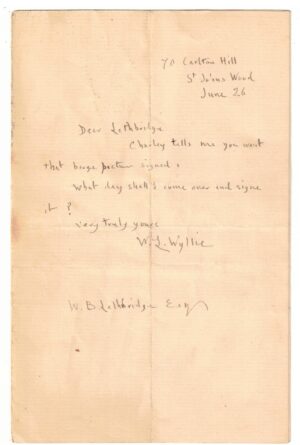 70 Carlton Hill
St John's Wood
June 26
Dear Lethbridge
Charley tells me you want
that barge picture signed.
What day shall I come over and signe
it ?
very truly yours
W. L. Wyllie
W. B. Lethbridge Esq